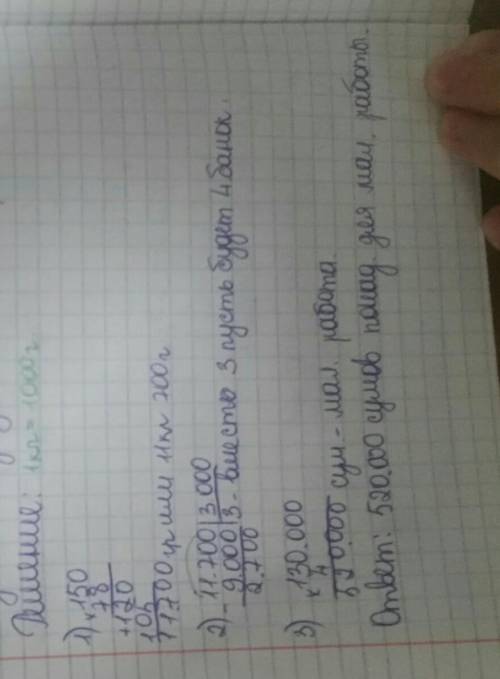 Решение: 1кг = 1000г
1) × 150
78
+ 120
105
11.700 гр или 11кг 700г
2) - 11.700 | 3.000
9.000 | 3 - вместо 3 пусть будет 4 банок.
2.700
3) × 130.000
4
520.000 сум - мал. работа.
Ответ: 520.000 сумов понад. для мал. работы.